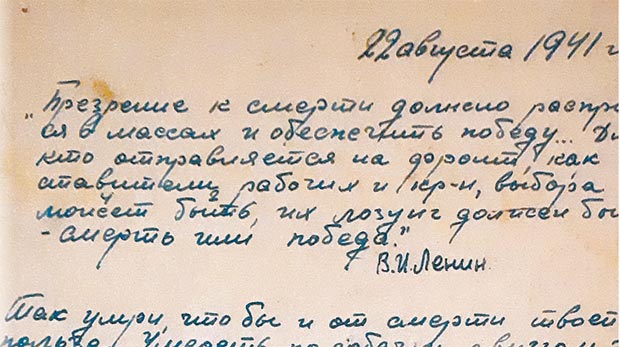 22 августа 1941 г
„Презрение к смерти должно распро
ся в массах и обеспечить победу... Дл
кто отправляется на фронт, как
ставители рабочих и кр-н, выбора
может быть, их лозунг должен бы
- смерть или победа."
В.И.Ленин.
Так умри, что бы и от смерти твоей
польза. Умереть